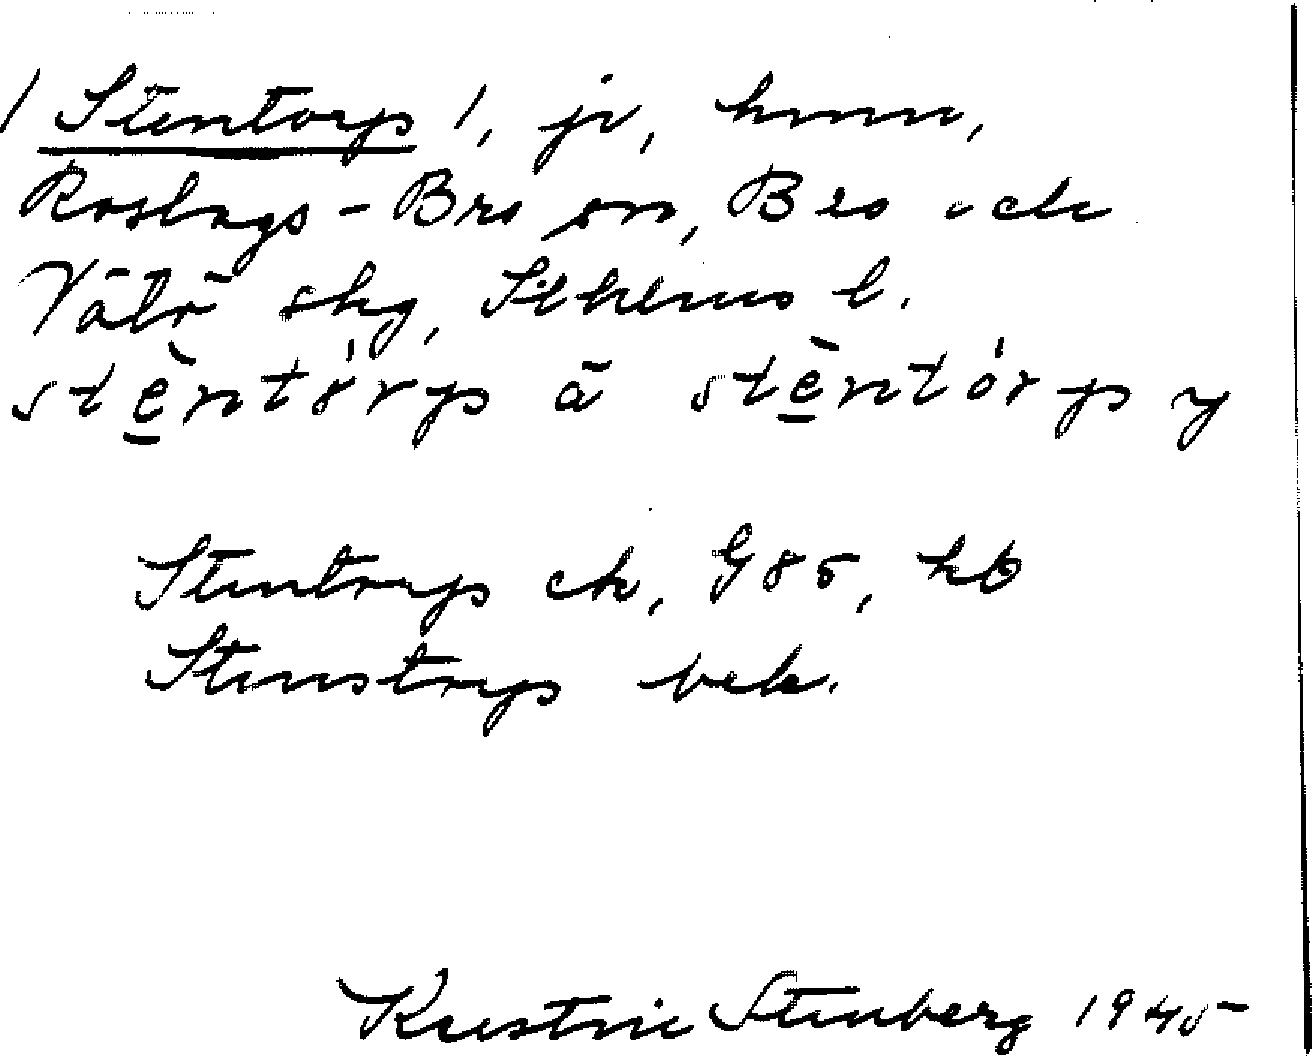 /Stentorp/, jr, hmn,
Roslags-Bro sn, Bro och
Vätö skg, Sthlms l.
stèntórp ä stèntórp y
Stentorp ek, G85, hb
Stenstorp bek.
Kerstin Stenberg 1945